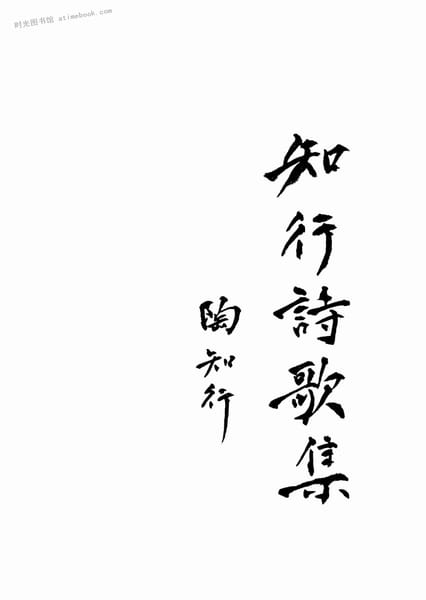 时光图书馆 atimebook.com
知行詩歌集
陶知行